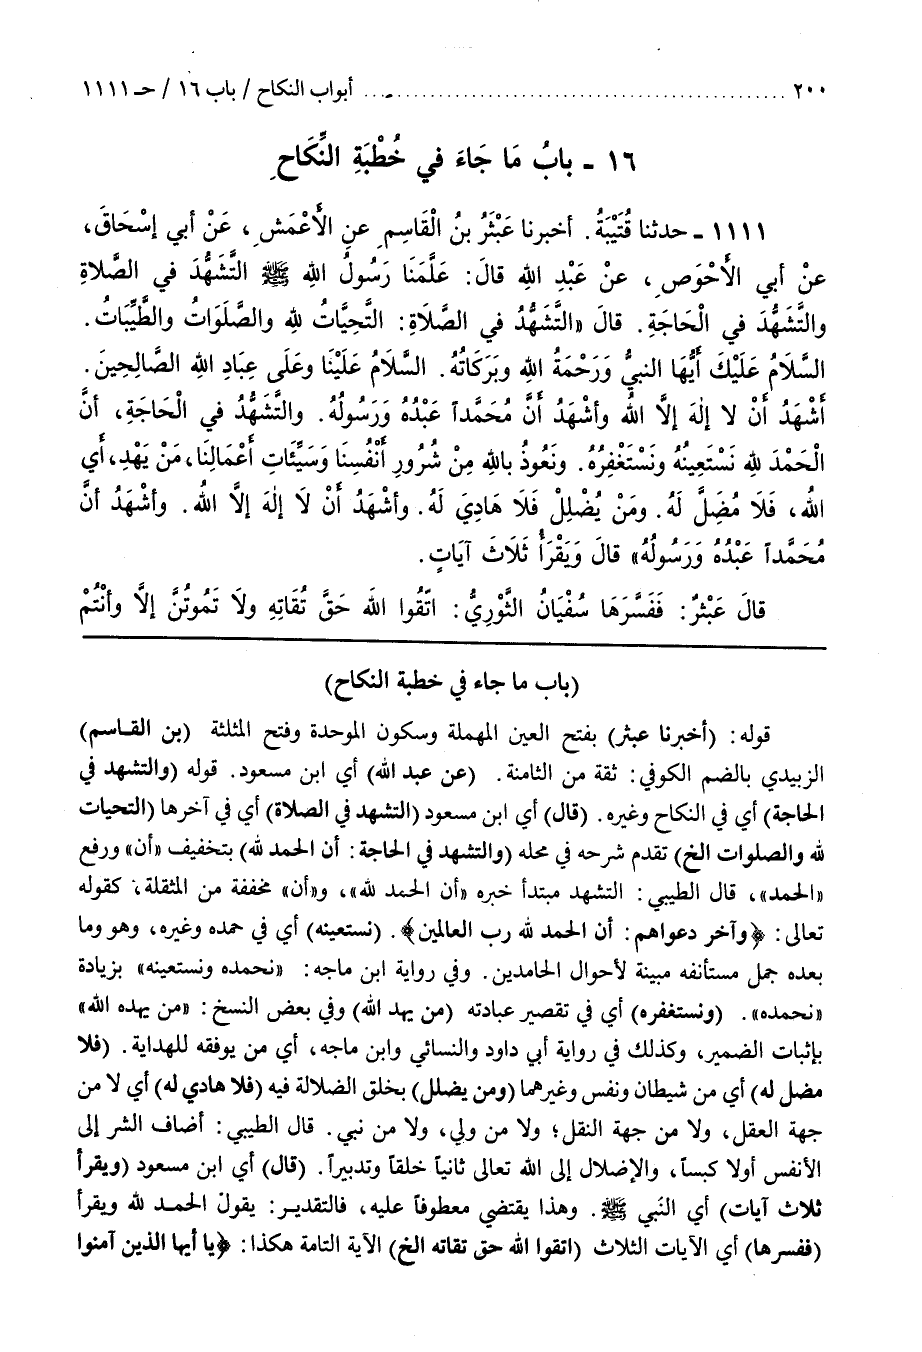 ٢٠٠ ................................................ أبواب النكاح / باب ١٦ / حـ ١١١١
١٦ ـ بابُ مَا جَاءَ في خُطْبَةِ النِّكَاحِ
١١١١ ـ حدثنا قُتَيْبَةُ. أخبرنا عَبْثَرُ بنُ الْقَاسِمِ عنِ الأَعْمَشِ، عَنْ أبي إسْحَاقَ،
عنْ أبي الأَحْوَصِ، عنْ عَبْدِ اللهِ قالَ: عَلَّمَنَا رَسُولُ اللهِ ﷺ التَّشَهُّدَ في الصَّلاةِ
والتَّشَهُّدَ في الْحَاجَةِ. قالَ «التَّشَهُّدُ في الصَّلاةِ: التَّحِيَّاتُ للهِ والصَّلَوَاتُ والطَّيِّبَاتُ.
السَّلامُ عَلَيْكَ أَيُّهَا النبيُّ وَرَحْمَةُ اللهِ وبَرَكَاتُهُ. السَّلامُ عَلَيْنَا وعَلَى عِبَادِ اللهِ الصَّالِحِينَ.
أَشْهَدُ أَنْ لا إلٰهَ إلَّا اللهُ وأشْهَدُ أنَّ مُحَمَّداً عَبْدُهُ وَرَسُولُهُ. والتَّشَهُّدُ في الْحَاجَةِ، أنَّ
الْحَمْدَ للهِ نَسْتَعِينُهُ ونَسْتَغْفِرُهُ. ونَعُوذُ باللهِ مِنْ شُرُورِ أَنْفُسِنَا وَسَيِّئَاتِ أَعْمَالِنَا، مَنْ يَهْدِ، أي
اللهُ، فَلَا مُضِلَّ لَهُ. ومَنْ يُضْلِلْ فَلَا هَادِيَ لَهُ. وأشْهَدُ أَنْ لَا إلٰهَ إلَّا اللهُ. وأشْهَدُ أنَّ
مُحَمَّداً عَبْدُهُ وَرَسُولُهُ» قالَ وَيَقْرَأُ ثَلَاثَ آيَاتٍ.
قالَ عَبْثَرٌ: فَفَسَّرَهَا سُفْيَانُ الثَّوْرِيُّ: اتّقُوا اللهَ حَقَّ تُقَاتِهِ ولَا تَمُوتُنَّ إلَّا وأنْتُمْ
(باب ما جاء في خطبة النكاح)
قوله: (أخبرنا عبثر) بفتح العين المهملة وسكون الموحدة وفتح المثلثة (بن القاسم)
الزبيدي بالضم الكوفي: ثقة من الثامنة. (عن عبد الله) أي ابن مسعود. قوله (والتشهد في
الحاجة) أي في النكاح وغيره. (قال) أي ابن مسعود (التشهد في الصلاة) أي في آخرها (التحيات
لله والصلوات الخ) تقدم شرحه في محله (والتشهد في الحاجة: أن الحمد لله) بتخفيف «أن» ورفع
«الحمد»، قال الطيبي: التشهد مبتدأ خبره «أن الحمد لله»، و«أن» مخففة من المثقلة، كقوله
تعالى: ﴿وآخر دعواهم: أن الحمد لله رب العالمين﴾. (نستعينه) أي في حمده وغيره، وهو وما
بعده جمل مستأنفه مبينة لأحوال الحامدين. وفي رواية ابن ماجه: «نحمده ونستعينه» بزيادة
«نحمده». (ونستغفره) أي في تقصير عبادته (من يهد الله) وفي بعض النسخ: «من يهده الله»
بإثبات الضمير، وكذلك في رواية أبي داود والنسائي وابن ماجه، أي من يوفقه للهداية. (فلا
مضل له) أي من شيطان ونفس وغيرهما (ومن يضلل) بخلق الضلالة فيه (فلا هادي له) أي لا من
جهة العقل، ولا من جهة النقل؛ ولا من ولي، ولا من نبي. قال الطيبي: أضاف الشر إلى
الأنفس أولا كسباً، والإضلال إلى الله تعالى ثانياً خلقاً وتدبيراً. (قال) أي ابن مسعود (ويقرأ
ثلاث آيات) أي النَّبي ﷺ. وهذا يقتضي معطوفاً عليه، فالتقدير: يقول الحمد لله ويقرأ
(ففسرها) أي الآيات الثلاث (اتقوا الله حق تقاته الخ) الآية التامة هكذا: ﴿يا أيها الذين آمنوا